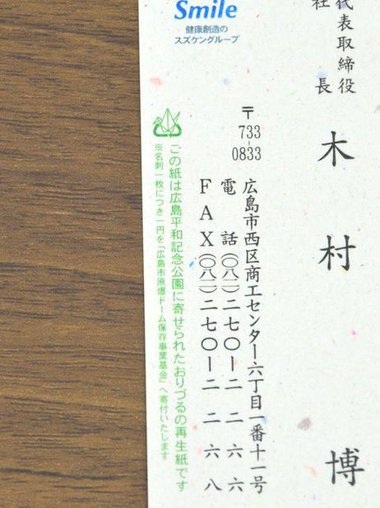 Smile
健康創造の
スズケングループ
代表取締役
社長
木村博
〒733-0833
広島市西区商工センター六丁目一番十一号
電話(〇八二)二七〇ー二二六六
FAX(〇八二)二七〇ー二二六八
この紙は広島平和記念公園に寄せられたおりづるの再生紙です
※名刺一枚につき一円を「広島市原爆ドーム保存事業基金」へ寄付いたします